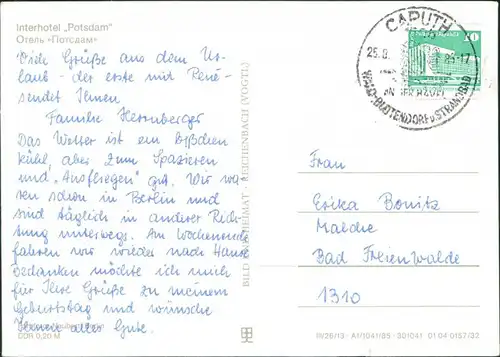 Interhotel „Potsdam"
Отель «Потсдам»
Viele Grüße aus dem Ur-
laub - der erste mit René -
sendet Ihnen
Familie Herrnberger
Das Wetter ist ein bißchen
kühl, aber zum Spazieren
und „Ausfliegen" gut. Wir wa-
ren schon in Berlin und
sind täglich in anderer Rich-
tung unterwegs. Am Wochenende
fahren wir wieder nach Hause
Bedanken möchte ich mich
für Ihre Grüße zu meinem
Geburtstag und wünsche
Ihnen alles Gute.
DDR 0,20 M
BILD UND HEIMAT · REICHENBACH (VOGTL)
CAPUTH
25.8. 85-17
AN DER HAVEL
WALD-BLÜTENDORF U. STRANDBAD
10
Frau
Erika Bonitz
Bad Freienwalde
1310
III/26/13 · A1/1041/85 · 301041 01 04 0157/32